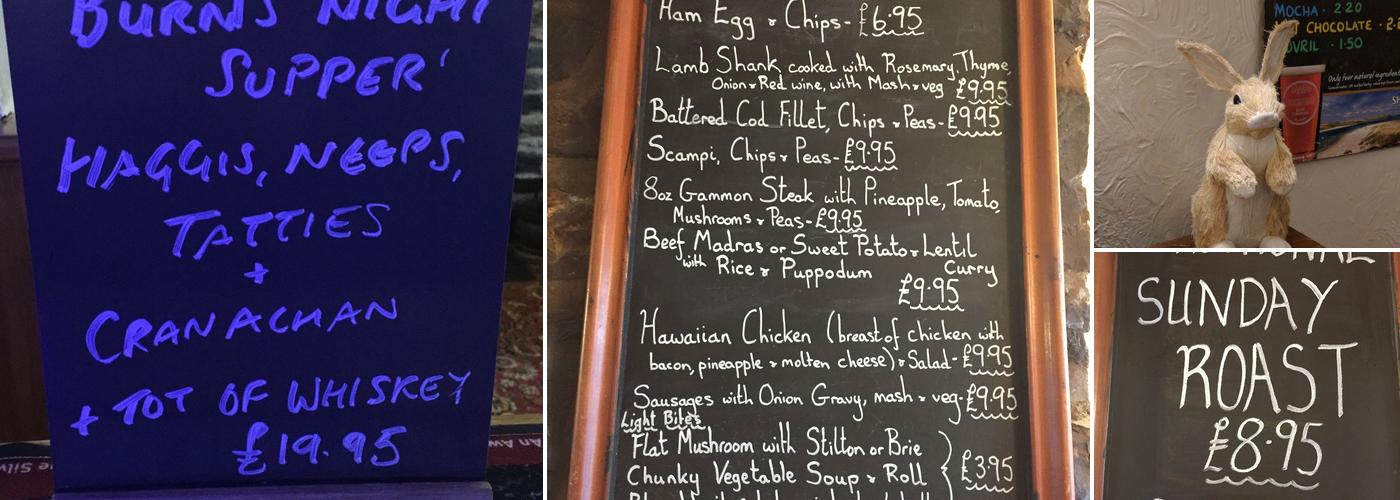 BURNS NIGHT
SUPPER'
HAGGIS, NEEPS,
TATTIES
+
CRANACHAN
+ TOT OF WHISKEY
£19.95
Ham Egg & Chips - £6.95
Lamb Shank cooked with Rosemary, Thyme,
Onion & Red wine, with Mash & veg £9.95
Battered Cod Fillet, Chips & Peas - £9.95
Scampi, Chips & Peas - £9.95
8oz Gammon Steak with Pineapple, Tomato,
Mushrooms & Peas - £9.95
Beef Madras or Sweet Potato & Lentil
Curry
with Rice & Puppodum
£9.95
Hawaiian Chicken (breast of chicken with
bacon, pineapple & molten cheese) & Salad - £9.95
Sausages with Onion Gravy, mash & veg - £9.95
Light Bites
Flat Mushroom with Stilton or Brie
Chunky Vegetable Soup & Roll } £3.95
MOCHA · 2.20
HOT CHOCOLATE · 2.2
BOVRIL · 1.50
Only four natural ingredients
SUNDAY
ROAST
£8.95